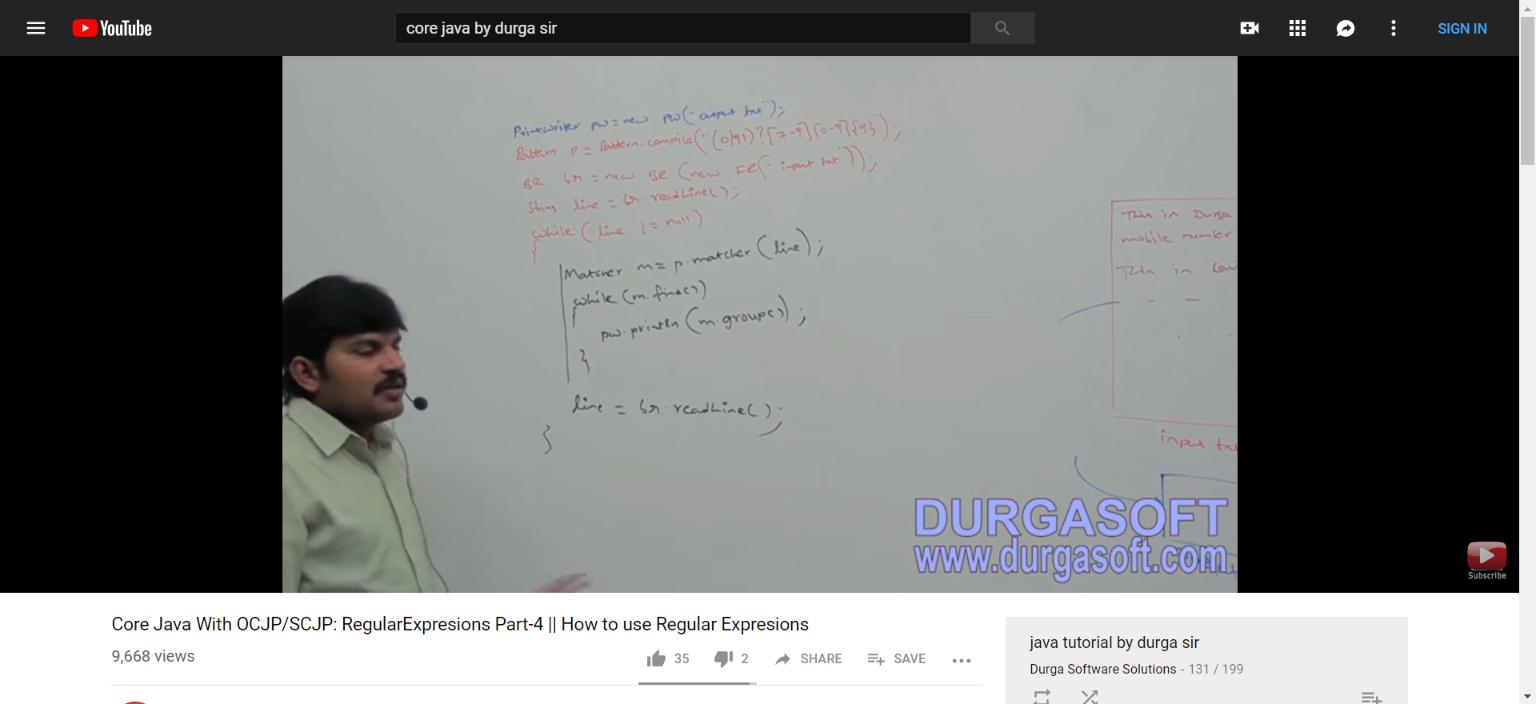 YouTube
core java by durga sir
SIGN IN
Printwriter pw = new pw("output.txt");
Pattern p = Pattern.compile("(0|91)?[7-9][0-9]{9}");
BR br = new BR (new FR("input.txt"));
String line = br.readLine();
while (line != null)
{
Matcher m = p.matcher(line);
while (m.find())
{
pw.println (m.group());
}
line = br.readLine();
}
This is Durga
mobile number
This is
- -
input.tx
DURGASOFT
www.durgasoft.com
Subscribe
Core Java With OCJP/SCJP: RegularExpresions Part-4 || How to use Regular Expresions
9,668 views
35
2
SHARE
SAVE
java tutorial by durga sir
Durga Software Solutions - 131 / 199